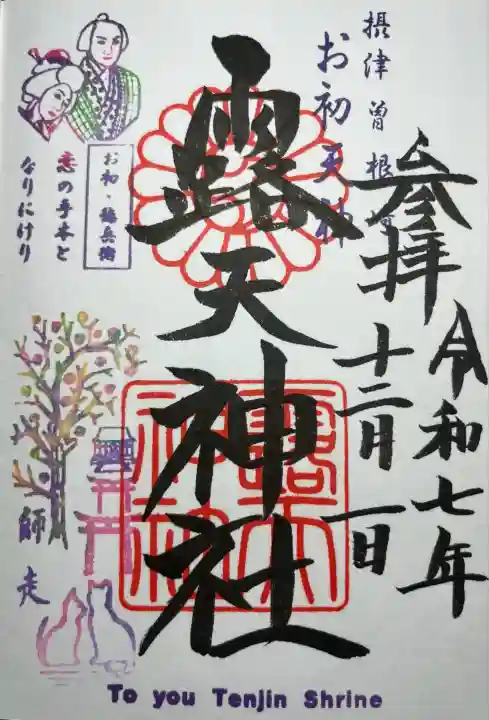 参拝
令和七年
十二月一日
摂津曽根崎
お初天神
露天神社
お初・徳兵衛
恋の手本と
なりにけり
師走
露天
神社
To you Tenjin Shrine